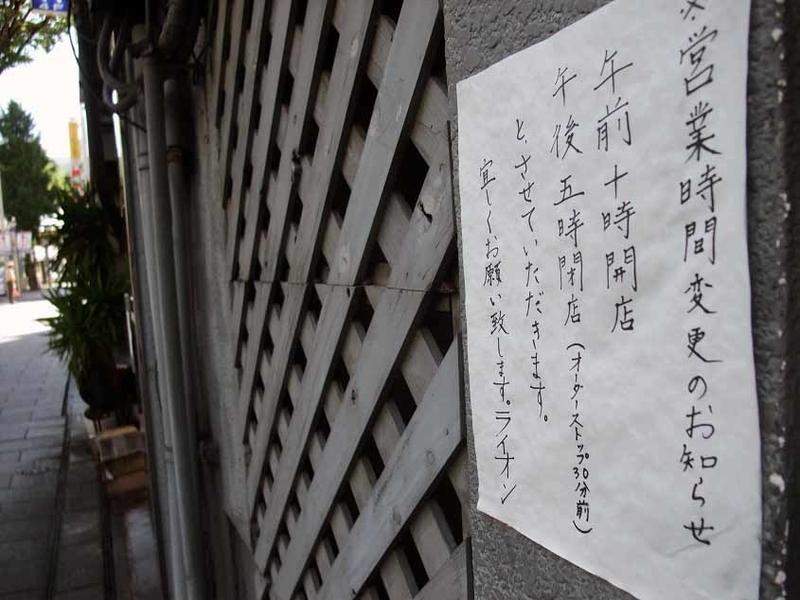 ※営業時間変更のお知らせ
午前十時開店
午後五時閉店(オーダーストップ30分前)
と、させていただきます。
宜しくお願い致します。ライオン